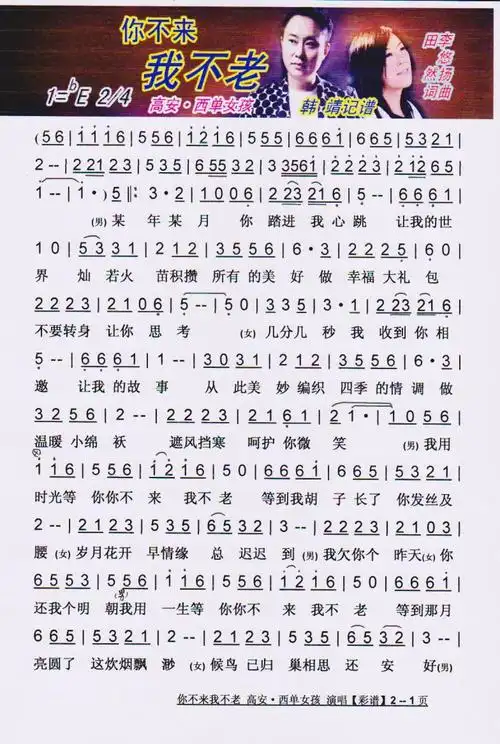 你不来
我不老
1=ᵇE 2/4
高安·西单女孩
韩 靖记谱
田悠然词
李扬曲
(5 6 | i i i 6 | 5 5 6 | i 2 i 6 | 5 0 0 6 | 6 6 1 6 | 5 3 2 1 |
2 -- | 2 2 1 2 3 | 5 5 3 2 | 3 3561 | 2 2 2 3 | 2 1 2 6 5 |
1 -- | 1 · ) 5 ‖: 3 · 2 | 1 0 0 6 | 2 23 21 6 | 5 -- | 6 6 6 1 |
(男)某 年某 月 你 踏进 我 心 跳 让我的世
1 0 | 5 3 3 1 | 2 1 2 | 3 5 3 5 | 6 · 3 | 2 1 2 3 | 5 · | 6 0 |
界 灿 若火 苗积攒 所有 的美 好 做 幸福 大礼 包
2 2 2 3 | 2 1 0 6 | 5 -- | 5 0 | 5 3 3 5 | 3 · 1 | 2 23 21 6 |
不要转身 让你 思 考 (女) 几分几 秒 我 收到 你 相
5 -- | 6 6 6 1 | 1 -- | 3 0 3 1 | 2 1 2 | 3 5 3 5 | 6 · 3 |
邀 让我 的故 事 从 此美 妙编织 四季的情 调 做
3 2 5 6 | 2 -- | 2 1 2 3 | 2 2 1 | 2 1 6 1 | 2 1 · | 1 0 5 6 |
温暖 小绵 袄 遮风挡寒 呵护 你微 笑 (男)我用
i i i 6 | 5 5 6 | i 2 i 6 | 5 0 0 6 | 6 6 1 6 | 5 3 2 1 |
时光等 你你不 来 我不 老 等到我胡 子长了 你发丝及
2 -- | 2 1 2 3 | 5 3 5 | 6 5 3 2 | 3 · 5 | 2 1 2 3 | 2 1 0 3 |
腰 (女) 岁月花开 早情缘 总 迟迟 到 (男)我欠你个 昨天(女)你
6 5 5 3 | 5 5 6 | i i i 6 | 5 5 6 | i 2 i 6 | 5 0 0 6 |
还我个明 朝我用 一生等 你你不 来 我不 老 等到那月
(男)
6 6 1 6 | 5 3 2 1 | 2 -- | 2 1 2 3 | 5 3 5 | 6 5 3 2 | 3 0 5 |
亮圆了 这炊烟飘 渺 (女) 候鸟已归 巢相思 还 安 好(男)
你不来我不老 高安·西单女孩 演唱【彩谱】2 -- 1 页